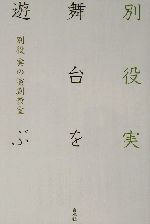 別役実
舞台を
遊ぶ
別役実の演劇教室
白水社